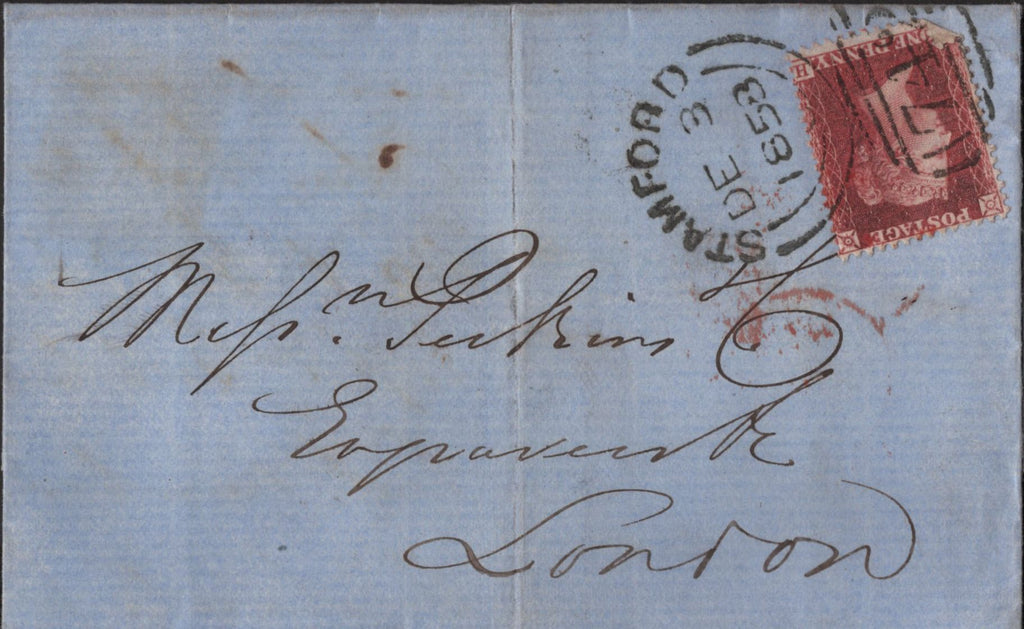 STAMFORD
DE 3
1858
ONE PENNY H
POSTAGE
Messrs Perkins & Co
Engravers &c
London